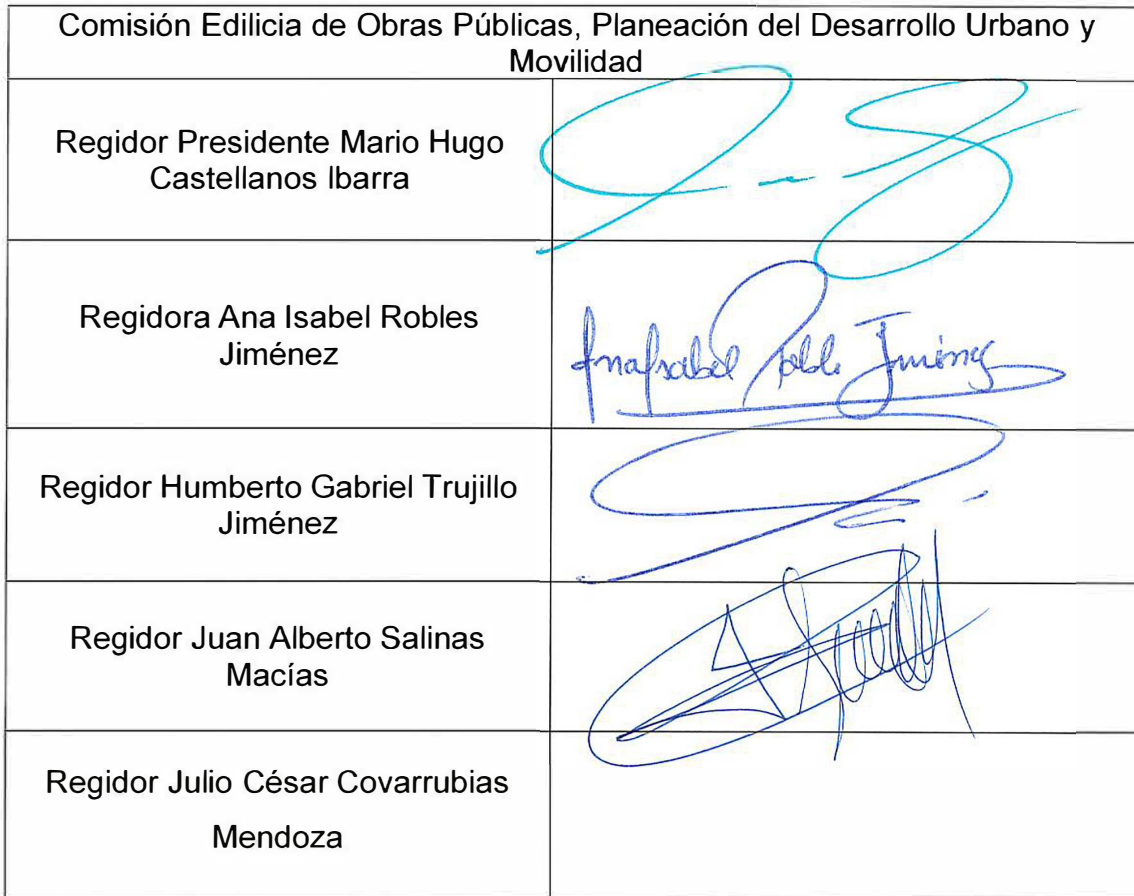 Comisión Edilicia de Obras Públicas, Planeación del Desarrollo Urbano y
Movilidad
Regidor Presidente Mario Hugo
Castellanos Ibarra
Regidora Ana Isabel Robles
Jiménez
Ana Isabel Roble Jiménez
Regidor Humberto Gabriel Trujillo
Jiménez
Regidor Juan Alberto Salinas
Macías
Regidor Julio César Covarrubias
Mendoza